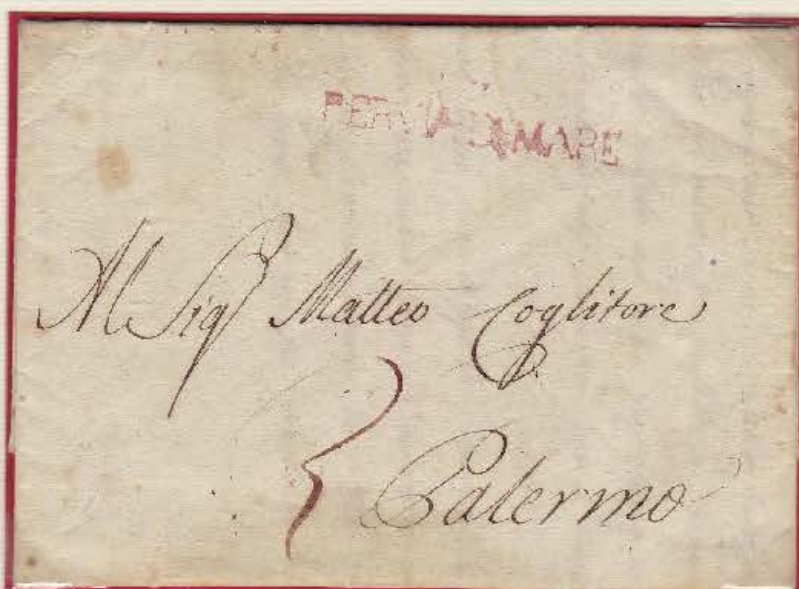 PER VIA DI MARE
Al Sigr Matteo Coglitore
Palermo